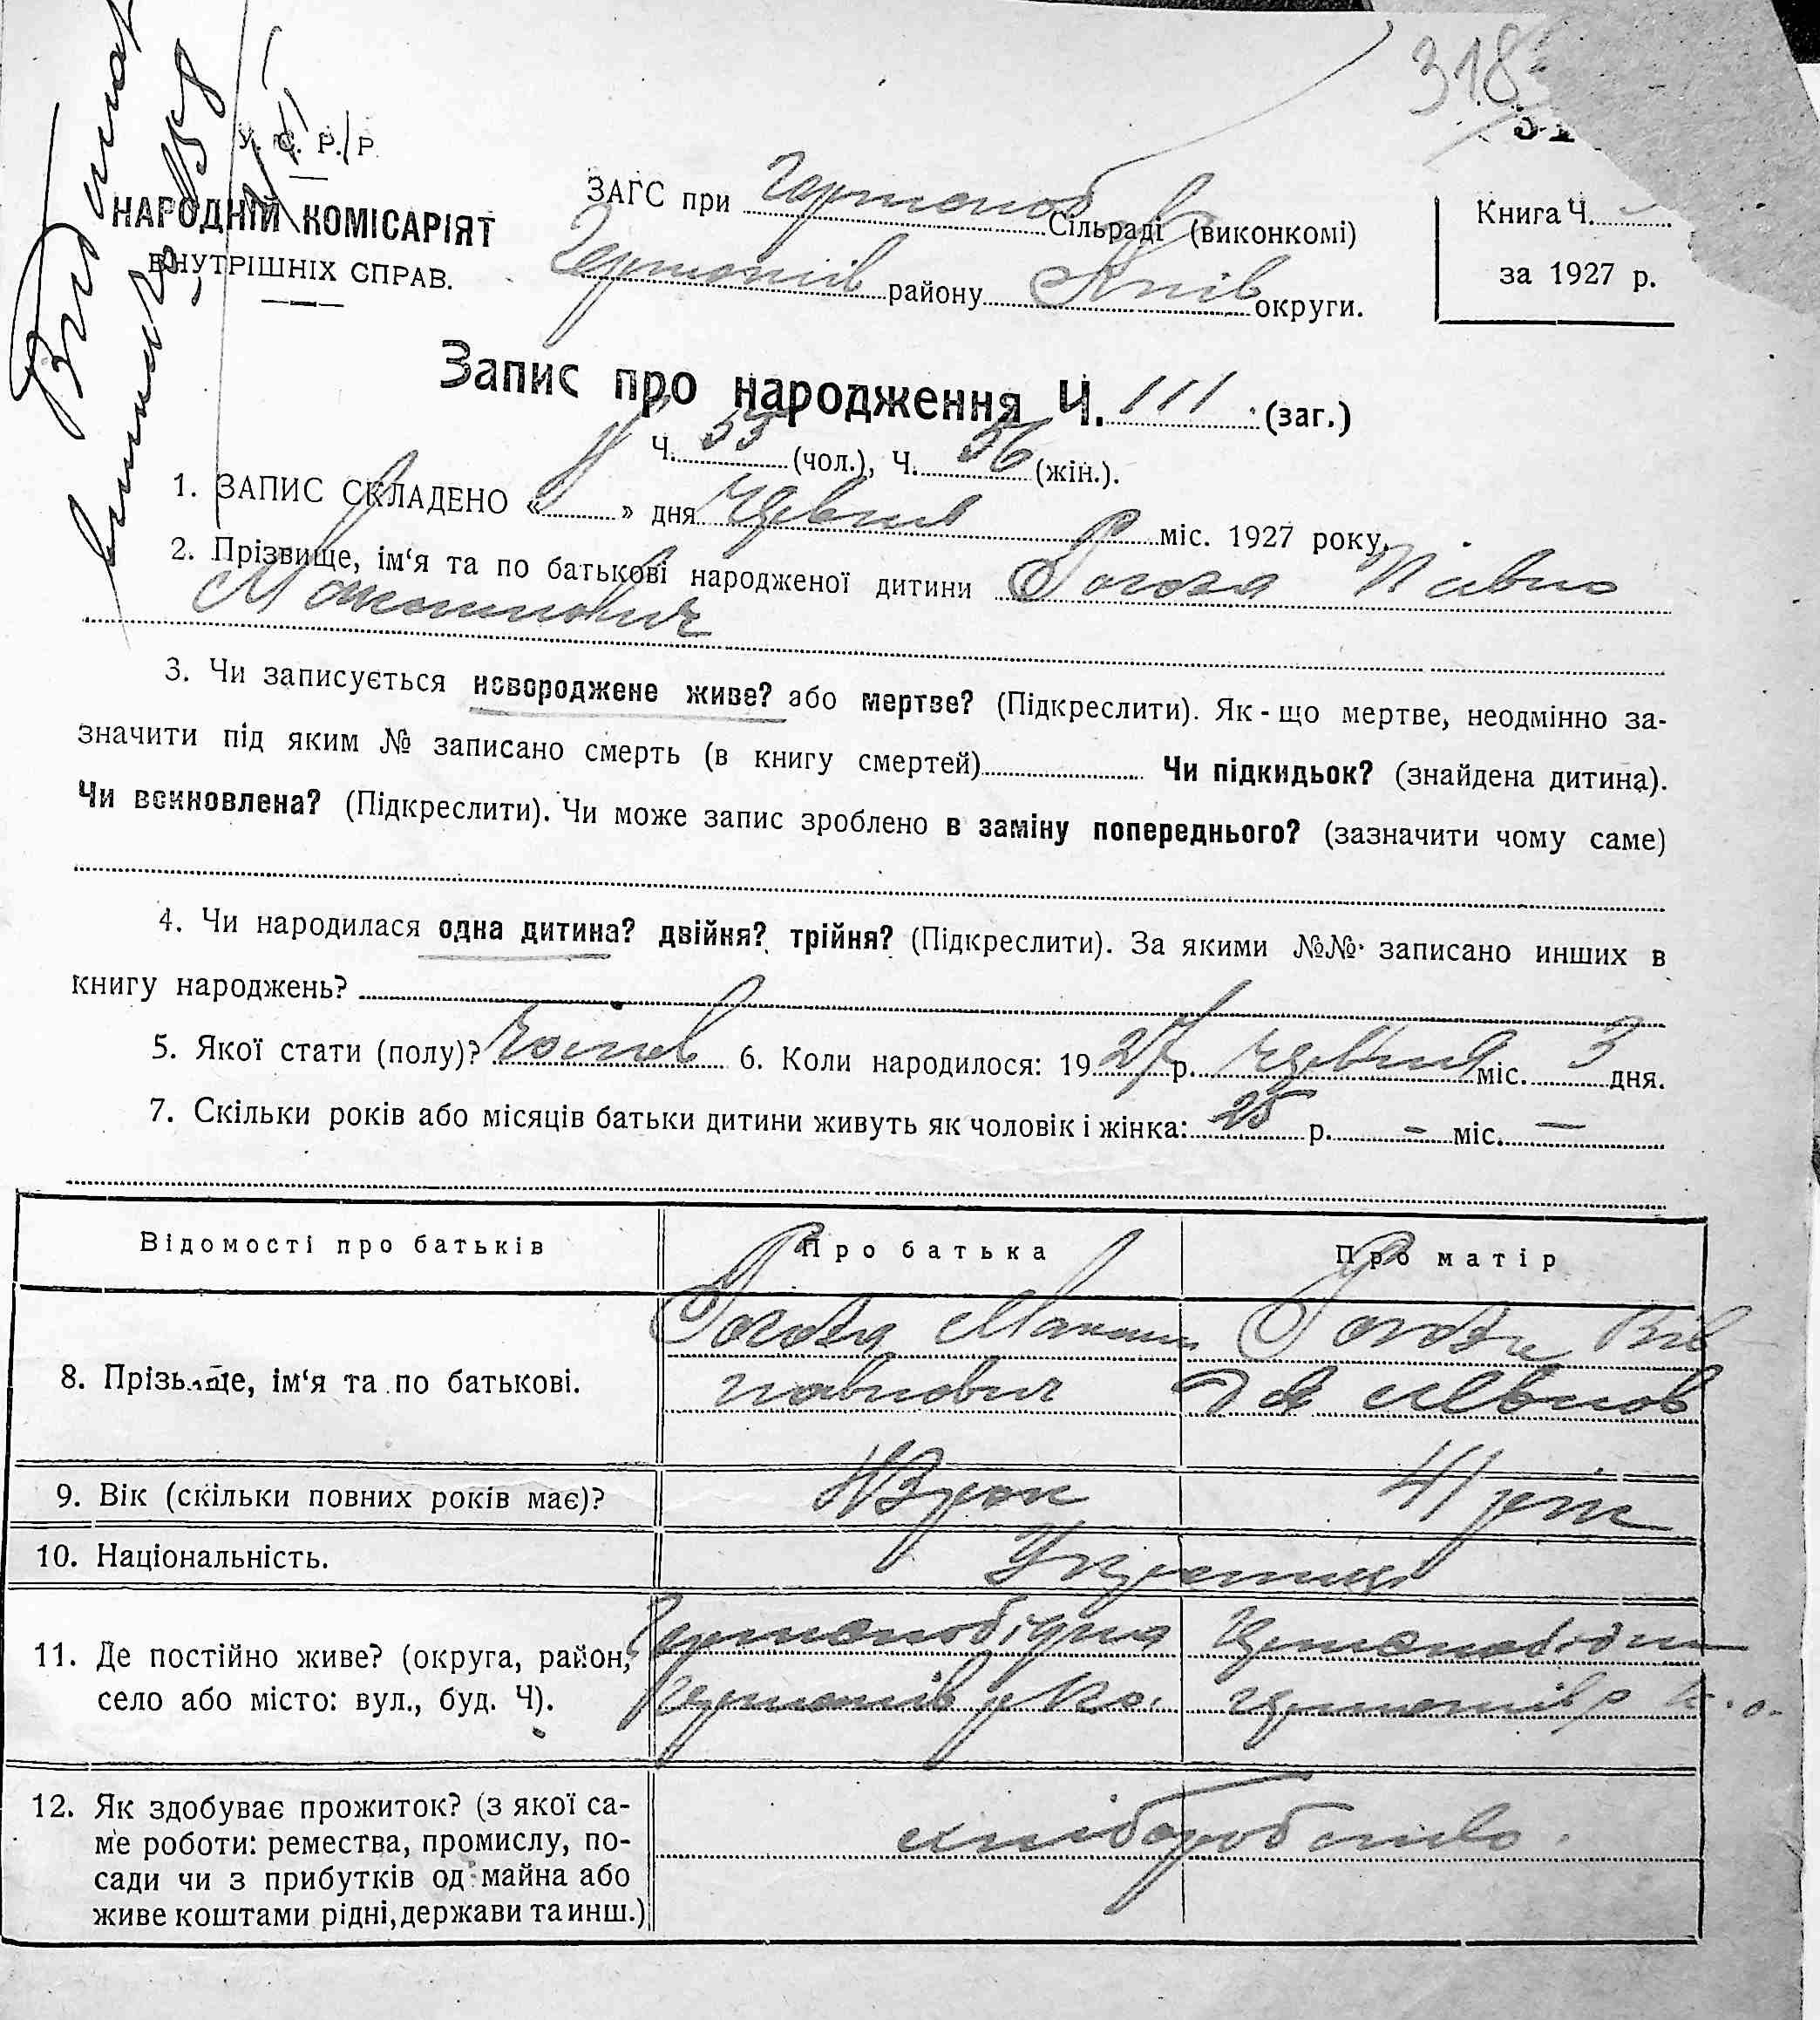 318
У. С. Р. Р.
НАРОДНІЙ КОМІСАРІЯТ
ВНУТРІШНІХ СПРАВ.
ЗАГС при Сільраді (виконкомі)
району Київ округи.
Книга Ч.
за 1927 р.
Запис про народження Ч. 111 (заг.)
Ч. 55 (чол.), Ч. 56 (жін.).
1. ЗАПИС СКЛАДЕНО « » дня червня міс. 1927 року.
2. Прізвище, ім‘я та по батькові народженої дитини Рогоза Павло
3. Чи записується новороджене живе? або мертве? (Підкреслити). Як-що мертве, неодмінно за-
значити під яким № записано смерть (в книгу смертей) Чи підкидьок? (знайдена дитина).
Чи всиновлена? (Підкреслити). Чи може запис зроблено в заміну попереднього? (зазначити чому саме)
4. Чи народилася одна дитина? двійня? трійня? (Підкреслити). За якими №№ записано инших в
книгу народжень?
5. Якої стати (полу)? чолов 6. Коли народилося: 1927 р. червня міс. 3 дня.
7. Скільки років або місяців батьки дитини живуть як чоловік і жінка: 25 р. – міс. —
Відомості про батьків Про батька Про матір
8. Прізвище, ім‘я та по батькові. Рогоза Рогоза
павлович
9. Вік (скільки повних років має)? 43 рок 41 рік
10. Національність. Українці
11. Де постійно живе? (округа, район,
село або місто: вул., буд. Ч).
12. Як здобуває прожиток? (з якої са-
ме роботи: ремества, промислу, по-
сади чи з прибутків од майна або
живе коштами рідні, держави та инш.)
хліборобство.